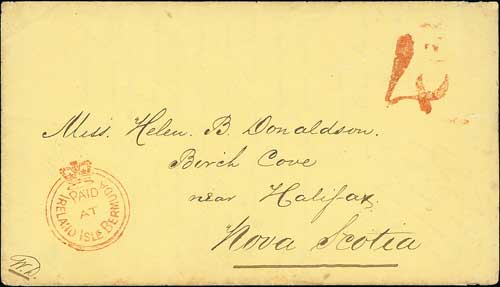 4
Miss. Helen. B. Donaldson.
Birch Cove
near Halifax
Nova Scotia
PAID
AT
IRELAND ISLE BERMUDA